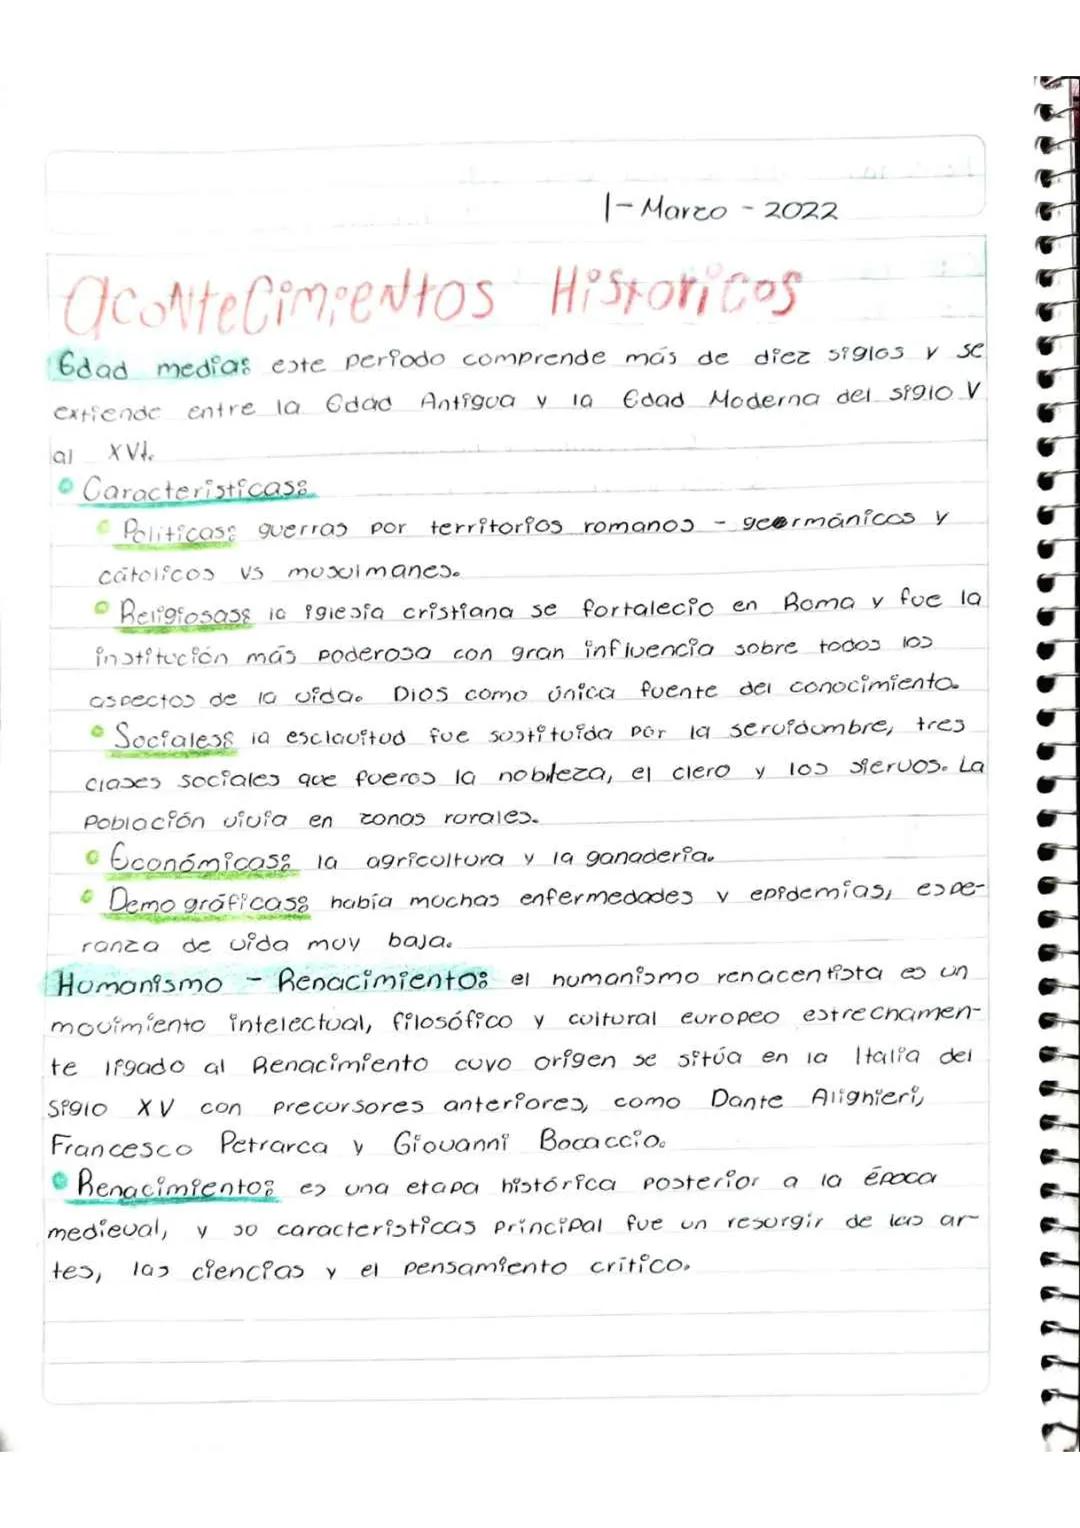 1- Marzo - 2022
aconteCimientos Historicos
Edad media: este periodo comprende más de diez siglos y se
extiende entre la Edad Antigua y la Edad Moderna del siglo V
al XVI.
Caracteristicas:
Politicas: guerras por territorios romanos - germánicos y
católicos vs musulmanes.
Religiosas: la iglesia cristiana se fortalecio en Roma y fue la
institución más poderosa con gran influencia sobre todos los
aspectos de la vida. Dios como única fuente del conocimiento.
Sociales: la esclavitud fue sustituida por la servidumbre, tres
clases sociales que fueros la nobleza, el clero y los siervos. La
Población vivia en zonas rurales.
Económicas: la agricultura y la ganaderia.
Demográficas: había muchas enfermedades y epidemias, espe-
ranza de vida muy baja.
Humanismo - Renacimiento: el humanismo renacentista es un
movimiento intelectual, filosófico y cultural europeo estrechamen-
te ligado al Renacimiento cuyo origen se sitúa en la Italia del
Siglo XV con precursores anteriores, como Dante Alighieri,
Francesco Petrarca y Giovanni Bocaccio.
Renacimiento: es una etapa histórica posterior a la época
medieval, y su caracteristicas principal fue un resurgir de las ar-
tes, las ciencias y el pensamiento critico.